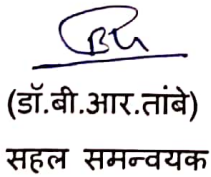 (डॉ.बी.आर.तांबे)
सहल समन्वयक